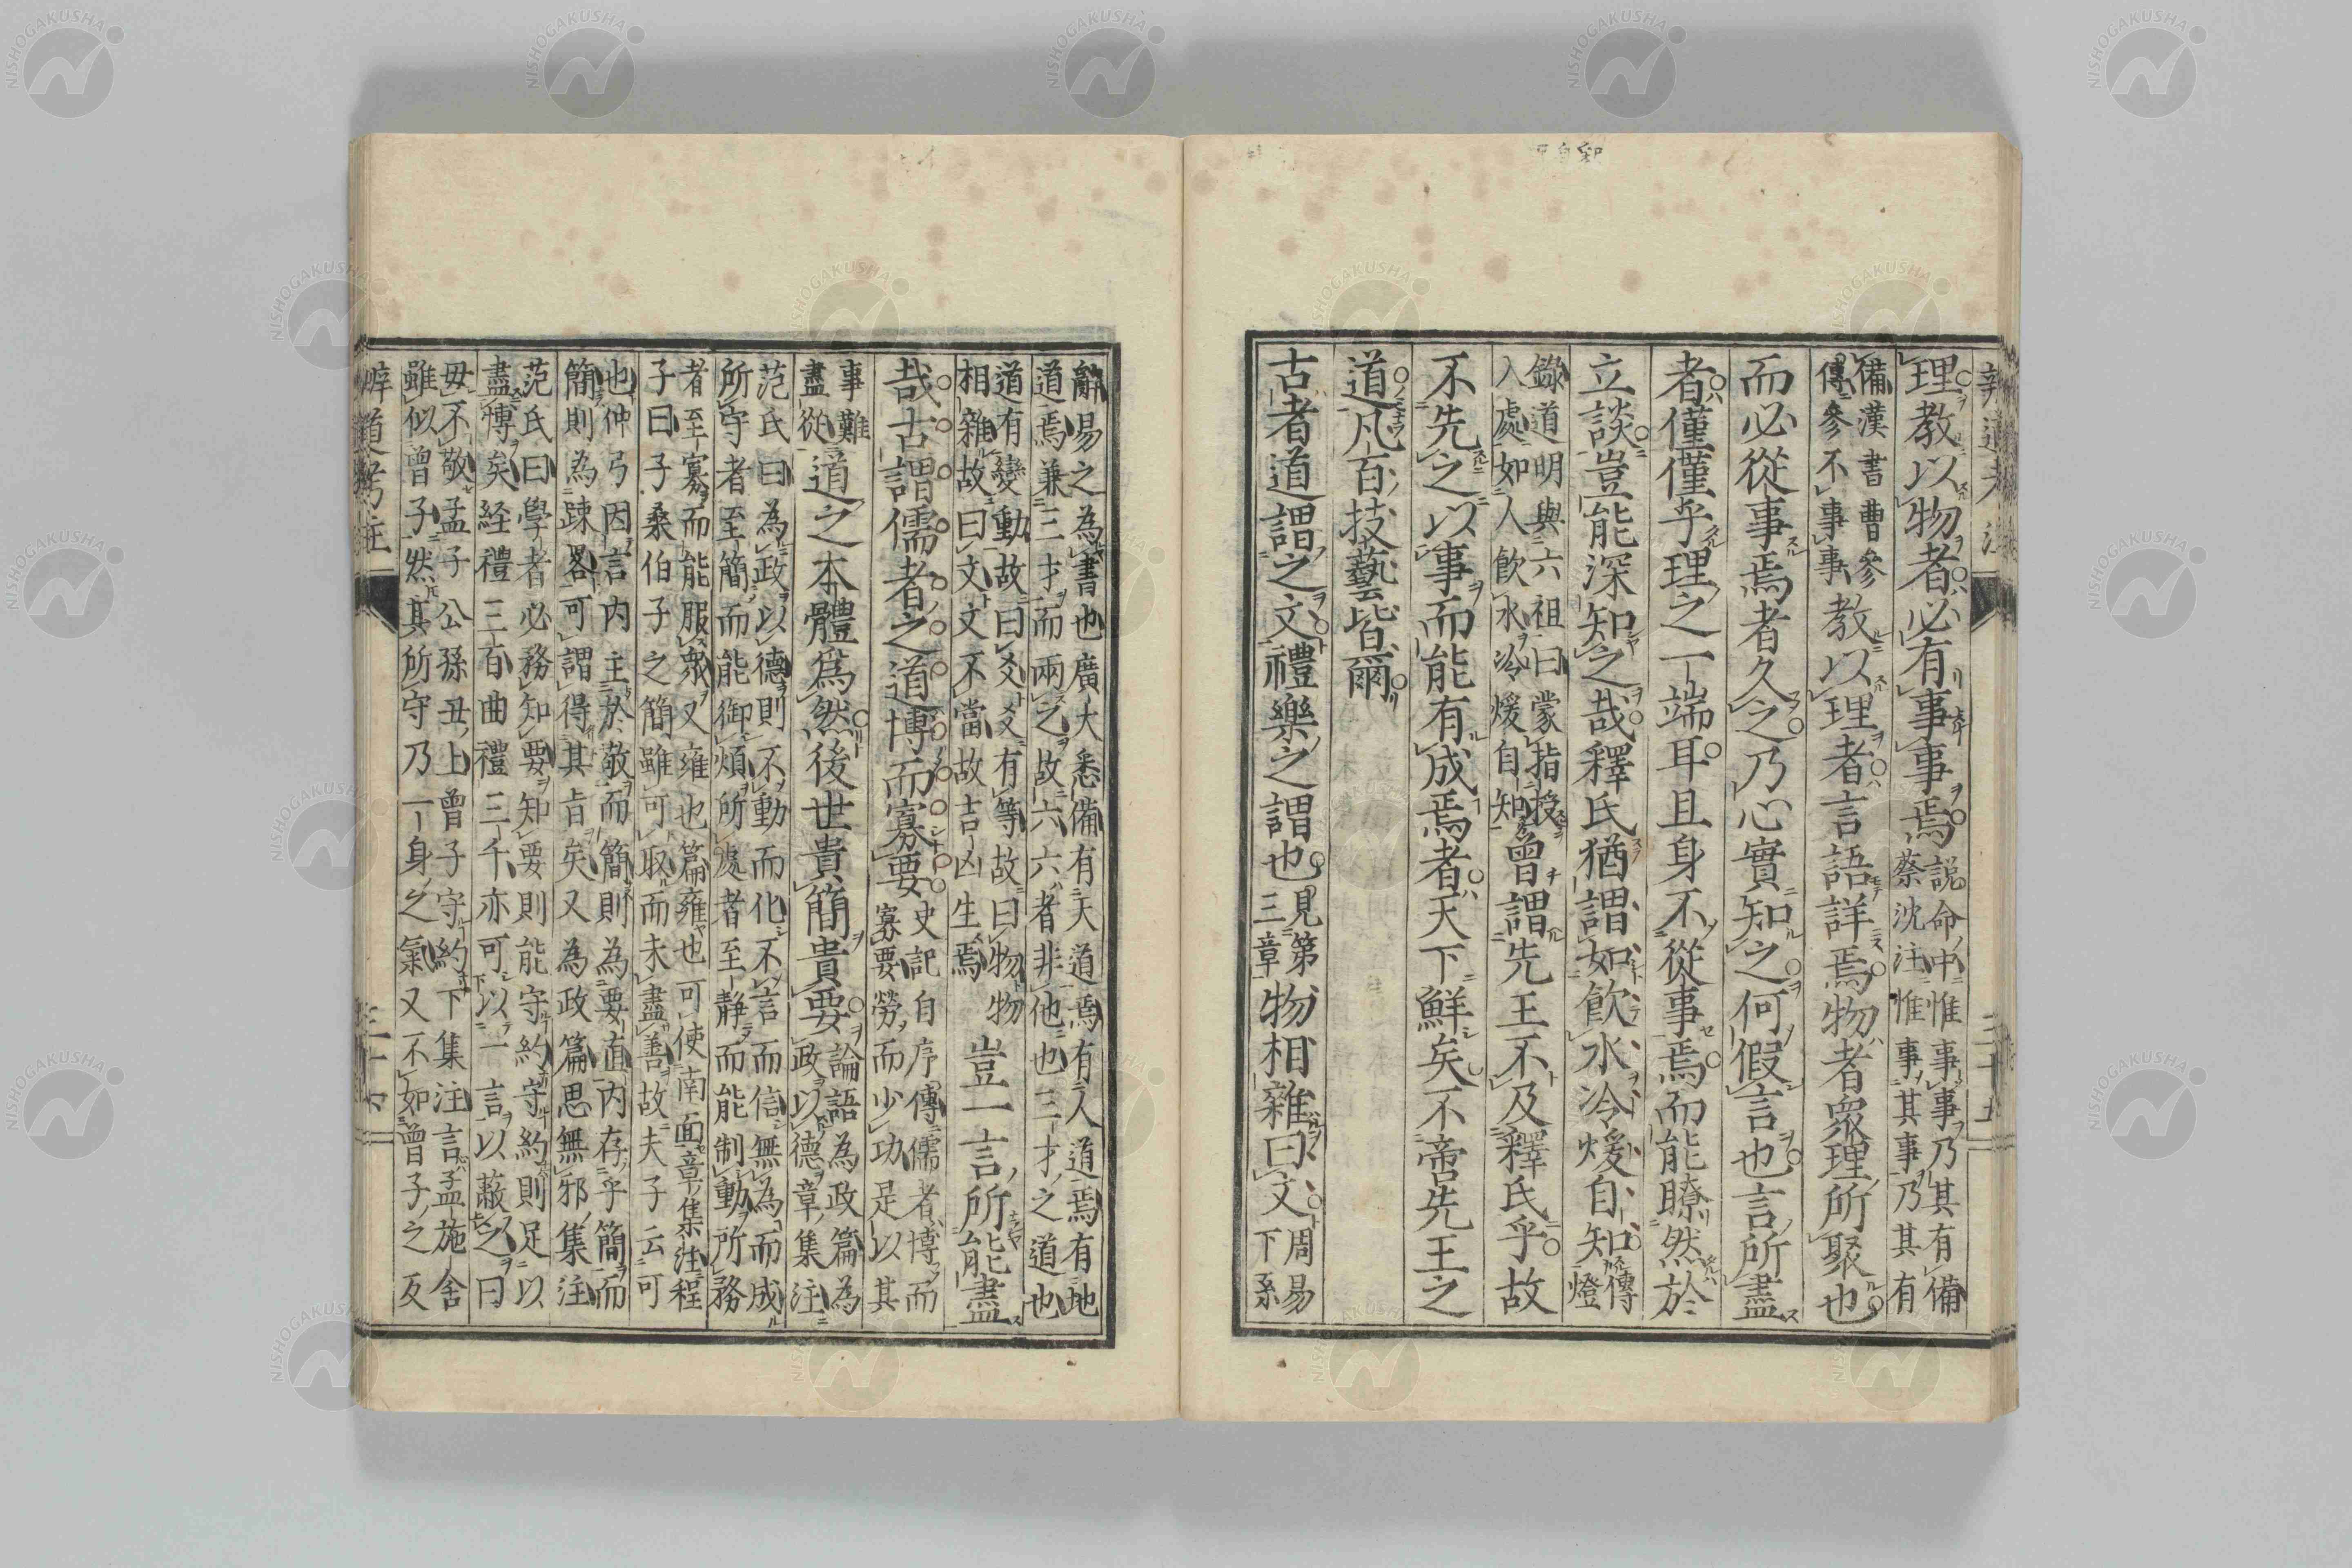 理教以物者必有事事焉說命中惟事事乃其有備
蔡沈注惟事其事乃其有
備漢書曹參
傳參不事事教以理者言語詳焉物者衆理所聚也
而必從事焉者久之乃心實知之何假言也言所盡
者僅僅乎理之一端耳且身不從事焉而能瞭然於
立談豈能深知之哉釋氏猶謂如飲水冷煖自知傳
燈
錄道明與六祖曰蒙指授
入處如人飲水冷煖自知曾謂先王不及釋氏乎故
不先之以事而能有成焉者天下鮮矣不啻先王之
道凡百技藝皆爾
古者道謂之文禮樂之謂也見第
三章物相雜曰文周易
下系
辭易之為書也廣大悉備有天道焉有人道焉有地
道焉兼三才而兩之故六六者非他也三才之道也
道有變動故曰爻爻有等故曰物物
相雜故曰文文不當故吉凶生焉豈一言所能盡
哉古謂儒者之道博而寡要史記自序傳儒者博而
寡要勞而少功足以其
事難
盡從道之本體爲然後世貴簡貴要論語為政篇為
政以德章集注
范氏曰為政以德則不動而化不言而信無為而成
所守者至簡而能御煩所處者至靜而能制動所務
者至寡而能服衆又雍也篇雍也可使南面章集注程
子曰子桑伯子之簡雖可取而未盡善故夫子云可
也仲弓因言内主於敬而簡則為要直内存乎簡而
簡則為疎畧可謂得其旨矣又為政篇思無邪集注
范氏曰學者必務知要知要則能守約守約則足以
盡博矣経禮三百曲禮三千亦可以一言以蔽之曰
毋不敬孟子公孫丑上曾子守約下集注言孟施舍
雖似曾子然其所守乃一身之氣又不如曾子之反
辨道考注